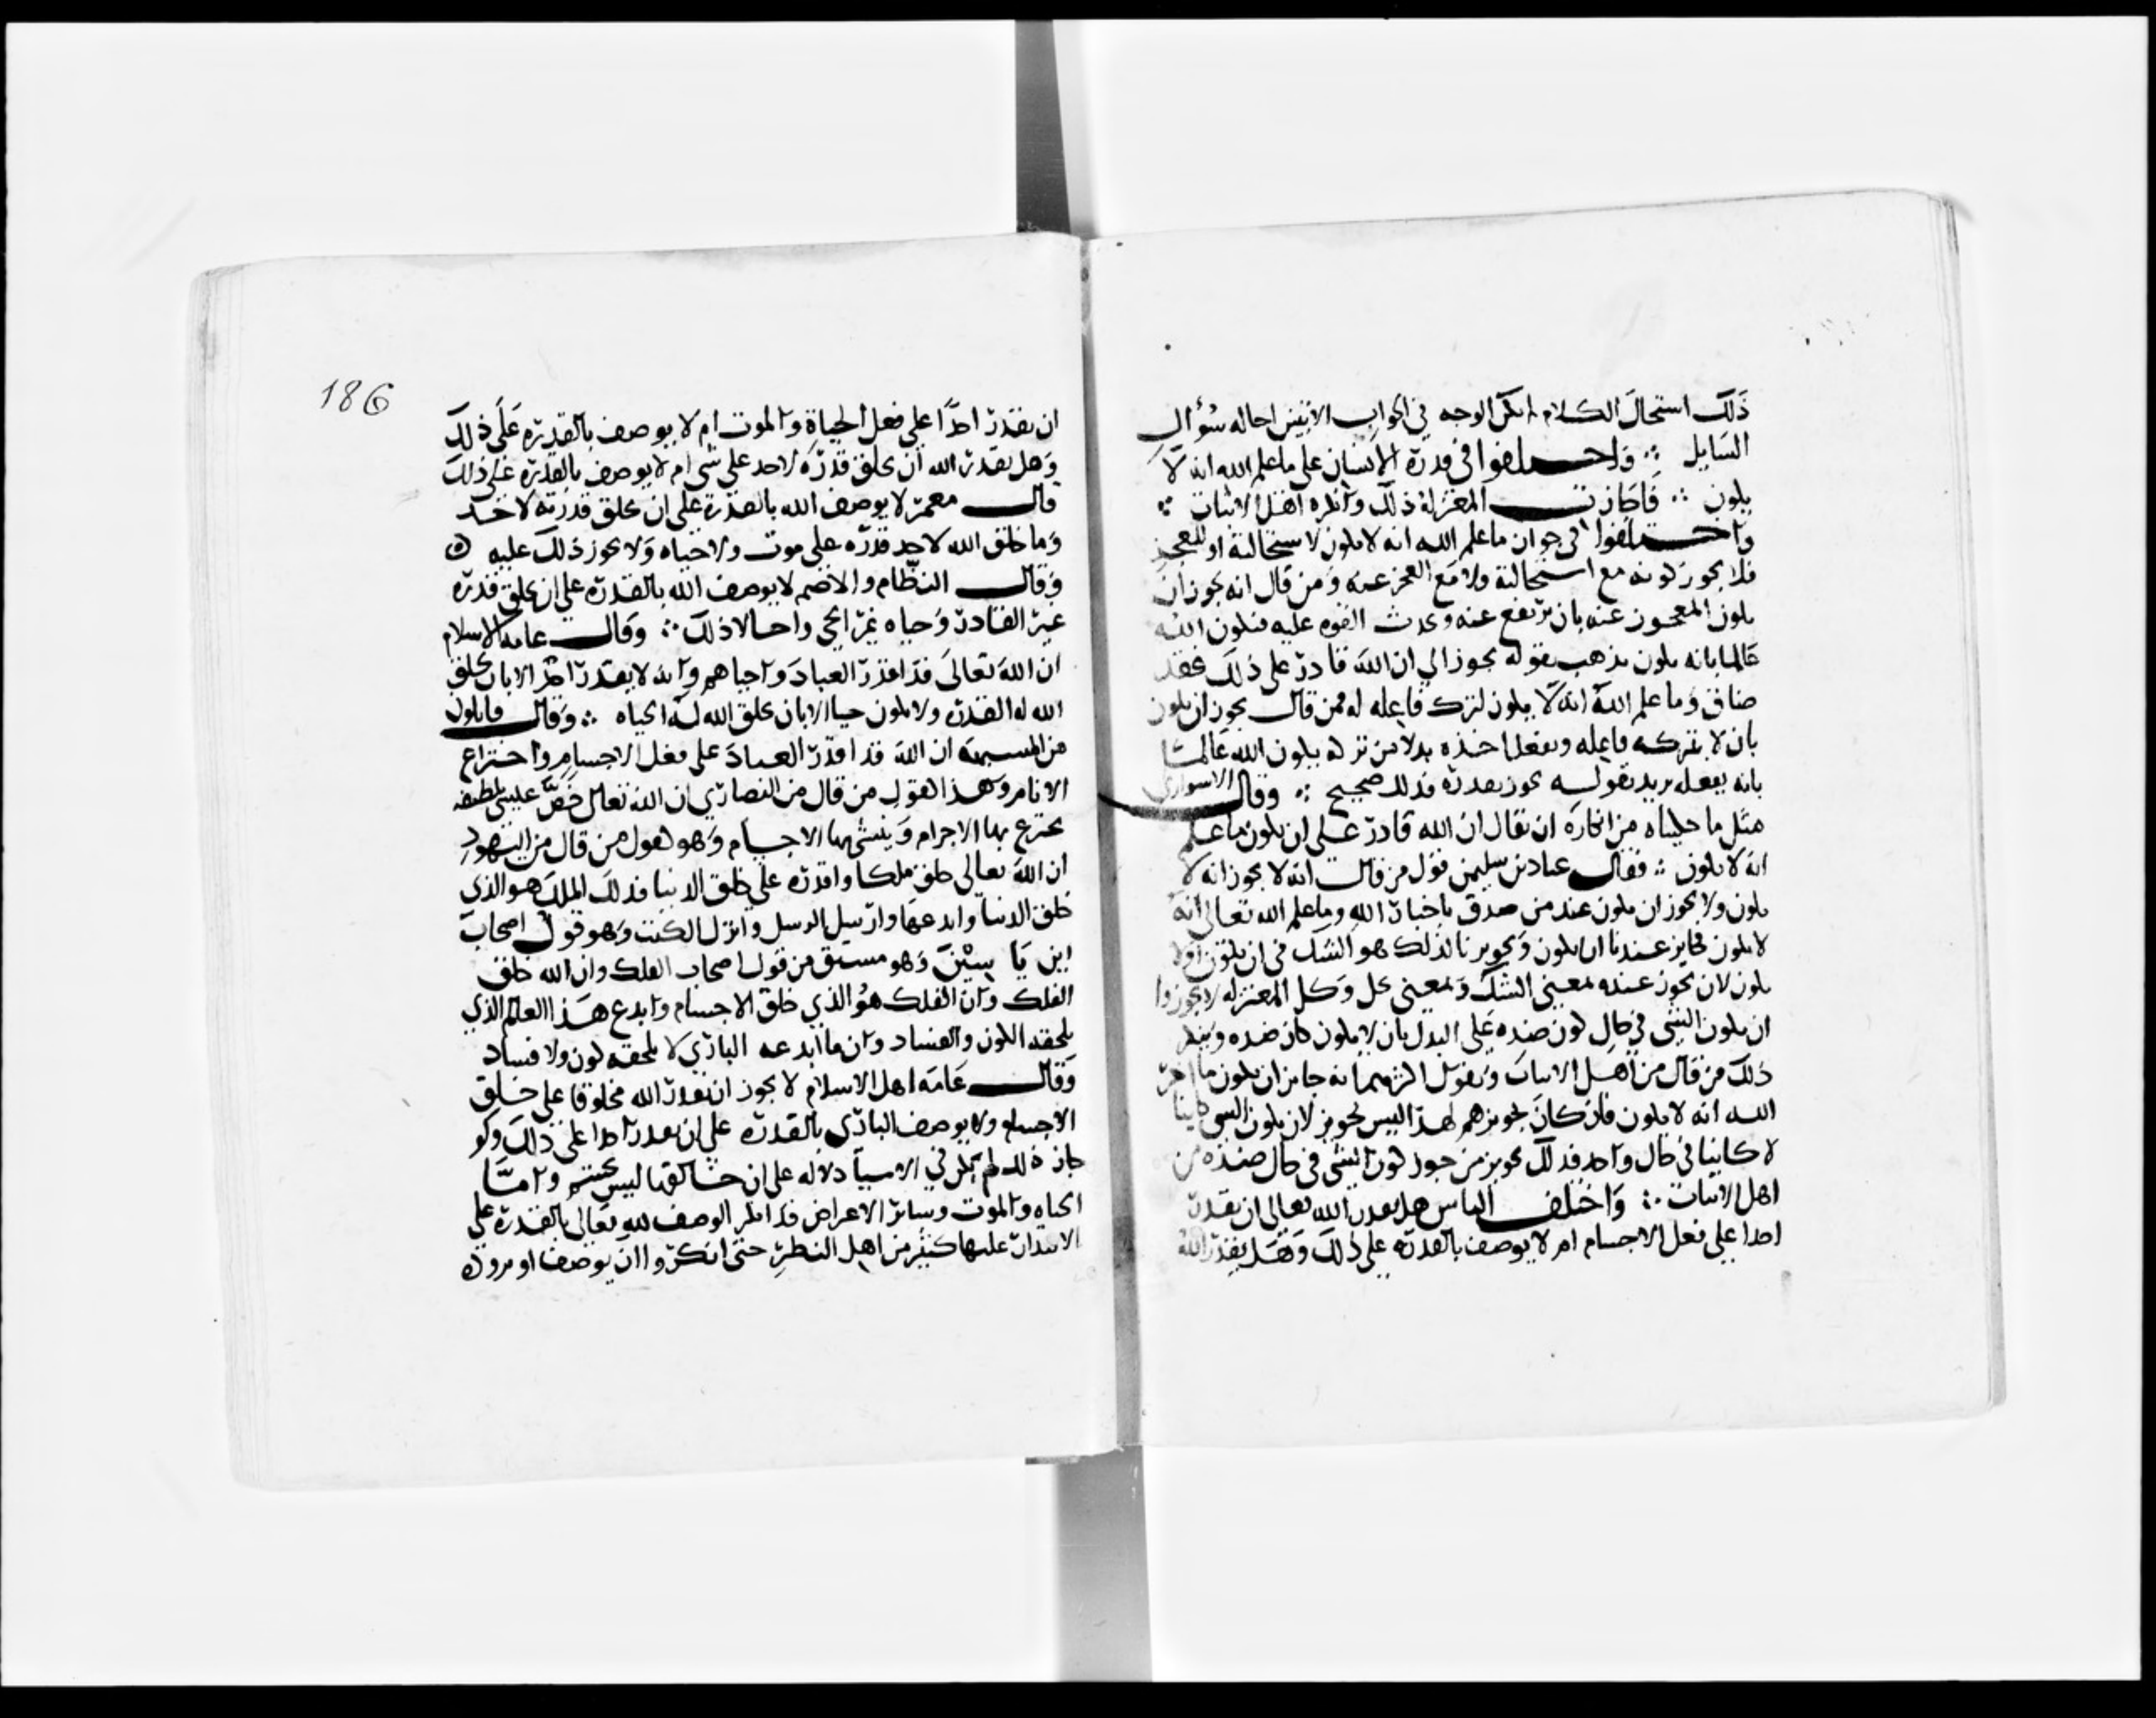 ذلك استحال الكلام ولم يكن الوجه في الجواب الا تبيين احالة سؤال
السايل ∴ واختلفوا في قدرة الانسان على ما علم الله انه لا
يكون ∴ فاجازت المعتزلة ذلك وانكره اهل الاثبات ∴
واختلفوا في جواز ما علم الله انه لا يكون لاستحالته او للعجز
فلا يجوز كونه مع استحالته ولا مع العجز عنه ومن قال انه يجوز ان
يكون المعجوز عنه بان يرتفع عنه ويحدث القوة عليه فيكون الله
عالما بانه يكون يذهب بقوله يجوز الى ان الله قادر على ذلك فقد
صادق وما علم الله انه لا يكون لترك فاعله له فمن قال يجوز ان يكون
بان لا يتركه فاعله ويفعل اخذه بدلا من تركه ويكون الله عالما
بانه يفعله يريد بقوله يجوز يقدر فذلك صحيح ∴ وقال الاسواري
مثل ما حكيناه من انكاره ان يقال ان الله قادر على ان يكون ما علم
انه لا يكون ∴ فقال عباد بن سليمن قول من قال انه لا يجوز انه لا
يكون ولا يجوز ان يكون عند من صدق باخبار الله وما علم الله تعالى انه
لا يكون فجايز عندنا ان يكون وتجويزنا لذلك هو الشك في ان يكون اولا
يكون لان يجوز عنده بمعنى الشك وبمعنى يحل وكل المعتزلة لا يجوزوا
ان يكون الشي في حال كون ضده على البدل بان لا يكون كان ضده وينكر
ذلك من قال من اهل الاثبات ويقول اكثرهم انه جايز ان يكون ما اخبر
الله انه لا يكون فان كان تجويزهم لهذا ليس تجويز لان يكون الشي كاينا
لا كاينا في حال واحد فذلك تجويز من جوز كون الشي في حال ضده من
اهل الاثبات ∴ واختلف الناس هل يقدر الله تعالى ان يقدر
احدا على فعل الاجسام ام لا يوصف بالقدرة على ذلك وهل يقدر الله
186
ان يقدر احدا على فعل الحياة والموت ام لا يوصف بالقدرة على ذلك
وهل يقدر الله ان يخلق قدرة لاحد على شي ام لا يوصف بالقدرة على ذلك
قال معمر لا يوصف الله بالقدرة على ان يخلق قدرة لاحد
وما خلق الله لاحد قدرة على موت ولا حياة ولا يجوز ذلك عليه
وقال النظام والاصم لا يوصف الله بالقدرة على ان يخلق قدرة
غير القادر وحياة غير الحي واحالا ذلك ∴ وقال عامة اهل الاسلام
ان الله تعالى قد اقدر العباد واحياهم وانه لا يقدر احد الا بان يخلق
الله له القدرة ولا يكون حيا الا بان يخلق الله له الحياة ∴ وقال قايلون
من المشبهة ان الله قد اقدر العباد على فعل الاجسام واختراع
الانام وهذا كقول من قال من النصارى ان الله تعالى خص عيسى بلطيفة
يخترع بها الاجرام وينشي بها الاجسام وهو كقول من قال من اليهود
ان الله تعالى خلق ملكا واقدره على خلق الدنيا فذلك الملك هو الذي
خلق الدنيا وابدعها وارسل الرسل وانزل الكتب وهو قول اصحاب
ابن ياسين وهو مشتق من قول اصحاب الفلك وان الله خلق
الفلك وان الفلك هو الذي خلق الاجسام وابدع هذا العالم الذي
يلحقه الكون والفساد وان ما ابدعه الباري لا يلحقه كون ولا فساد
وقال عامة اهل الاسلام لا يجوز ان يقدر الله مخلوقا على خلق
الاجسام ولا يوصف الباري بالقدرة على ان يقدر احدا على ذلك ولو
جاز ذلك لم يكن في الاشيا دلالة على ان خالقها ليس بجسم واما
الحياة والموت وساير الاعراض فقد انكر الوصف لله تعالى بالقدرة على
الاقدار عليها كثير من اهل النظر حتى انكروا ان يوصف